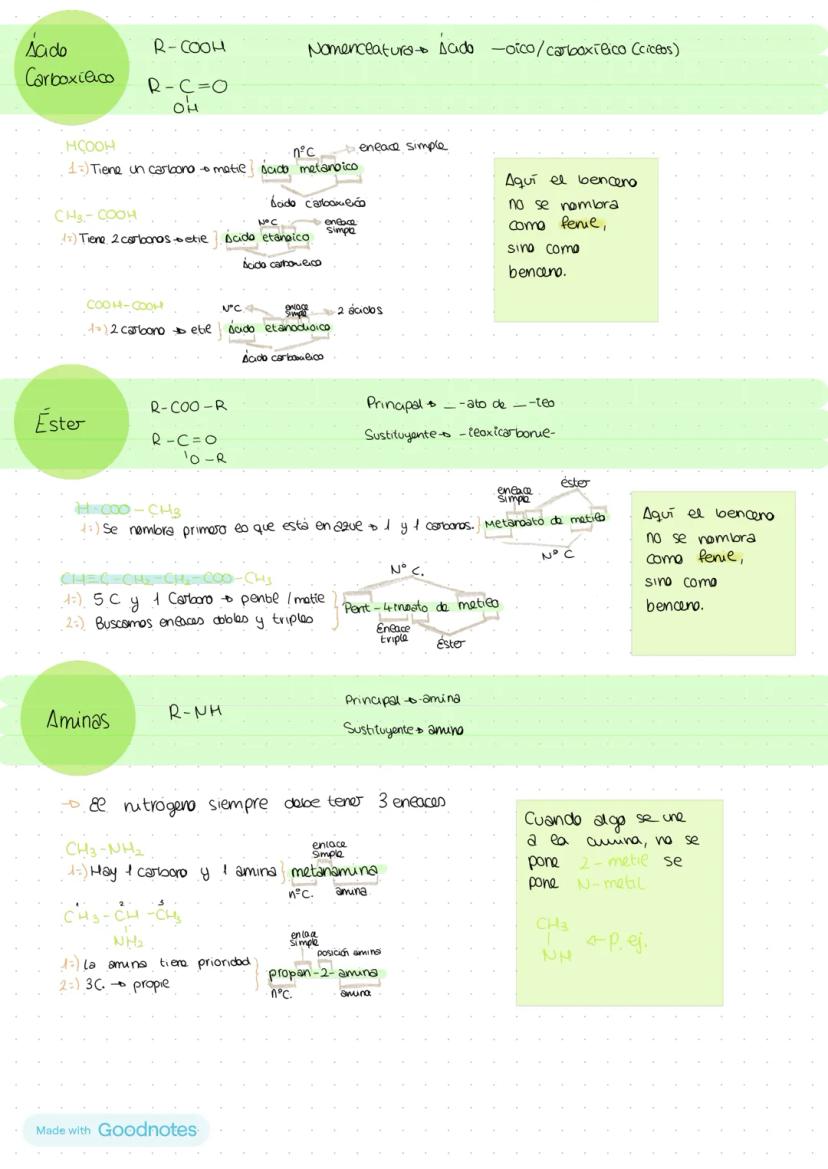 Ácido
Carboxílico
R-COOH
R-C=O
OH
Nomenclatura→ Ácido -oico/carboxílico (ciclos)
HCOOH
1º) Tiene un carbono → metil
Ácido metanoico
nºC
enlace simple
Ácido carboxílico
CH3-COOH
1º) Tiene 2 carbonos → etil
Ácido etanoico
NºC
enlace
simple
Ácido carboxílico
COOH-COOH
1º) 2 carbono → etil
Ácido etanodioico
NºC
enlace
simple
2 ácidos
Ácido carboxílico
Aquí el benceno
no se nombra
como fenil,
sino como
benceno.
Éster
R-COO-R
R-C=O
O-R
Principal → _-ato de _-ilo
Sustituyente → -iloxicarbonil-
H-COO-CH3
1º) Se nombra primero lo que está en azul → 1 y 1 carbonos.
Metanoato de metilo
enlace
simple
éster
Nº C
CH≡C-CH2-CH2-COO-CH3
1º) 5 C y 1 Carbono → pentil/metil
2º) Buscamos enlaces dobles y triples
Nº C.
Pent-4-inoato de metilo
Enlace
triple
Éster
Aquí el benceno
no se nombra
como fenil,
sino como
benceno.
Aminas
R-NH
Principal → -amina
Sustituyente → amino
→ El nitrógeno siempre debe tener 3 enlaces
CH3-NH2
1º) Hay 1 carbono y 1 amina
metanamina
enlace
simple
nºC.
amina
1 2 3
CH3-CH-CH3
NH2
1º) La amina tiene prioridad
2º) 3C. → propil
enlace
simple
posición amina
propan-2-amina
nºC.
amina
Cuando algo se une
a la amina, no se
pone 2-metil se
pone N-metil
CH3
NH ←P. ej.
Made with Goodnotes